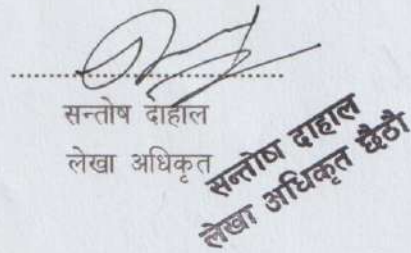 सन्तोष दाहाल
लेखा अधिकृत
सन्तोष दाहाल
लेखा अधिकृत छैठौं